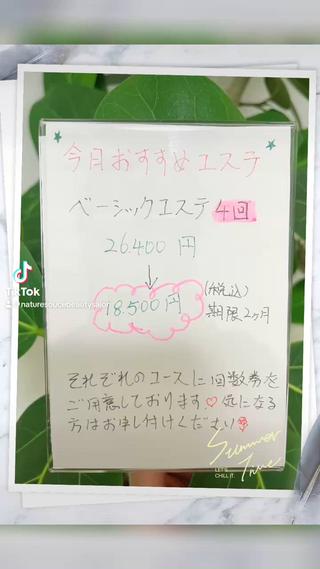 今月おすすめエステ
ベーシックエステ 4回
26.400 円
↓
18.500円
(税込)
期限2ヶ月
それぞれのコースに回数券を
ご用意しております♡気になる
方はお申し付けください
TikTok
@naturesoucebeautysalon
Summer
LET'S
CHILL IT.
Time